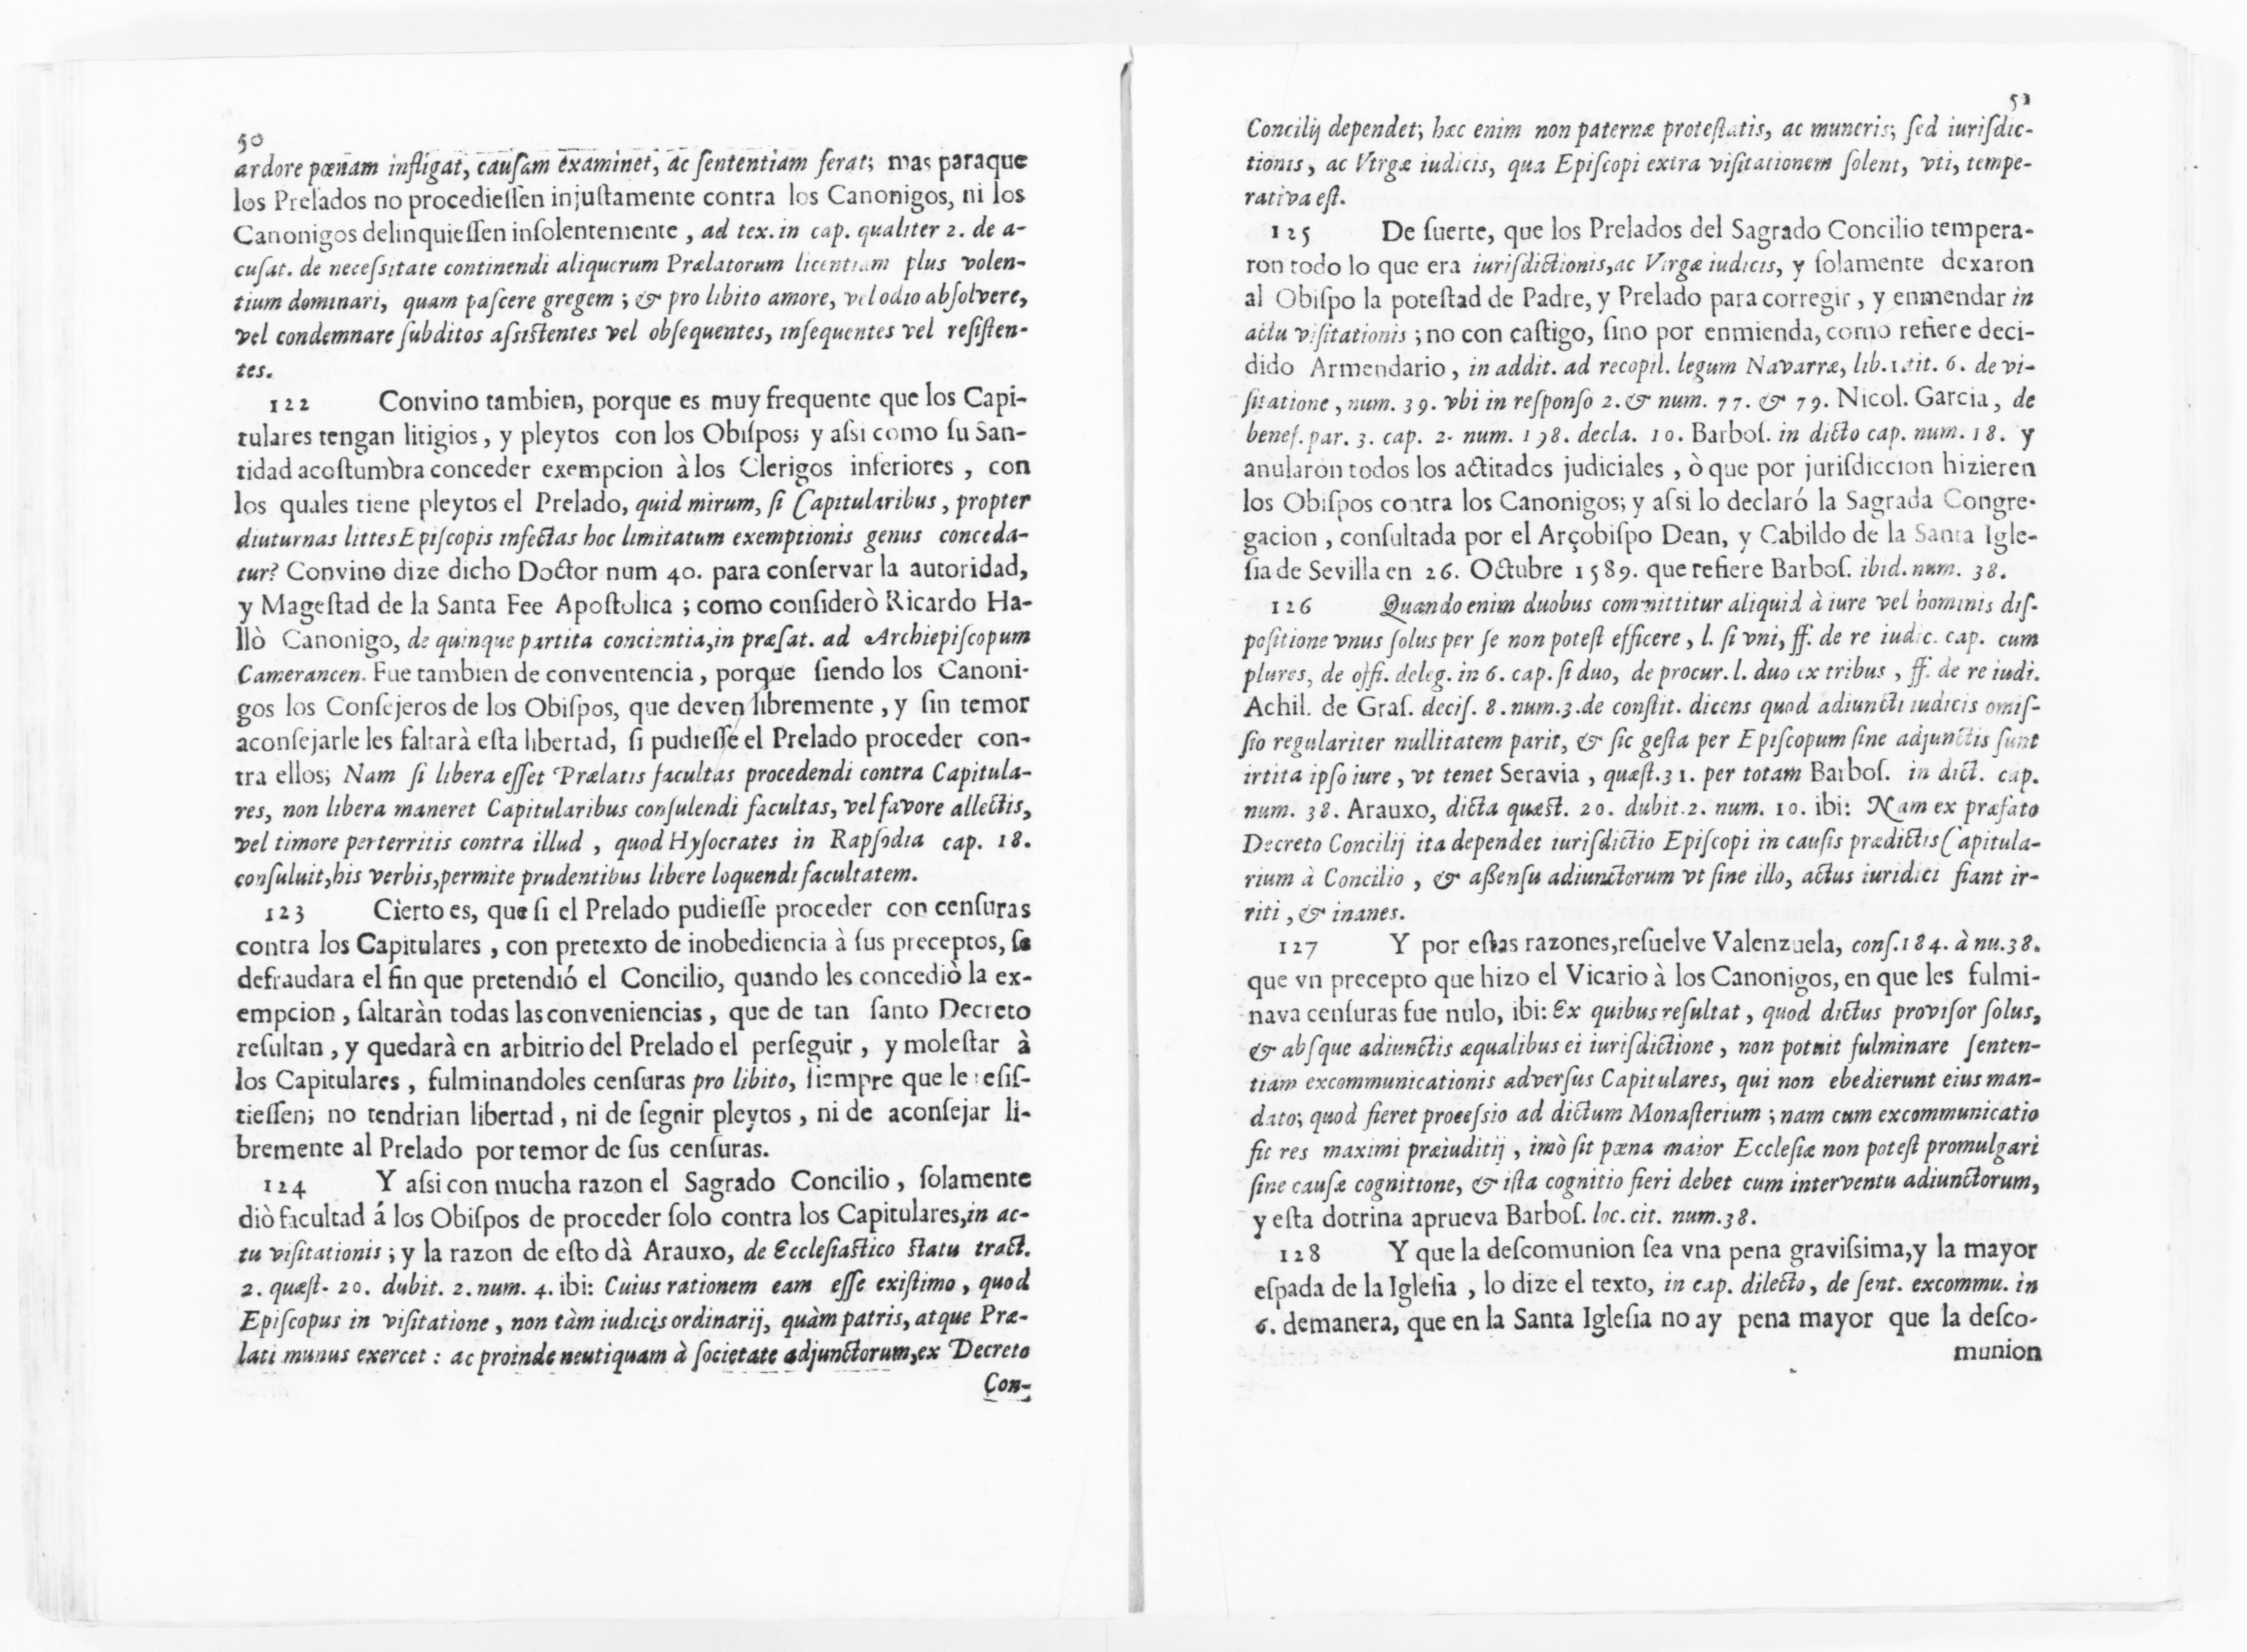 50
ardore pœnam infligat, cauſam examinet, ac ſententiam ferat; mas paraque
los Prelados no procedieſſen injuſtamente contra los Canonigos, ni los
Canonigos delinquieſſen inſolentemente, ad tex. in cap. qualiter 2. de a-
cuſat. de neceſsitate continendi aliquorum Prælatorum licentiam plus volen-
tium dominari, quam paſcere gregem; & pro libito amore, vel odio abſolvere,
vel condemnare ſubditos aſsiſtentes vel obſequentes, inſequentes vel reſiſten-
tes.
122 Convino tambien, porque es muy frequente que los Capi-
tulares tengan litigios, y pleytos con los Obiſpos; y aſsi como ſu San-
tidad acoſtumbra conceder exempcion à los Clerigos inferiores, con
los quales tiene pleytos el Prelado, quid mirum, ſi Capitularibus, propter
diuturnas littes Epiſcopis infectas hoc limitatum exemptionis genus conceda-
tur? Convino dize dicho Doctor num 40. para conſervar la autoridad,
y Mageſtad de la Santa Fee Apoſtolica; como conſiderò Ricardo Ha-
llò Canonigo, de quinque partita concientia, in præfat. ad Archiepiſcopum
Camerancen. Fue tambien de conventencia, porque ſiendo los Canoni-
gos los Conſejeros de los Obiſpos, que deven libremente, y ſin temor
aconſejarle les faltarà eſta libertad, ſi pudieſſe el Prelado proceder con-
tra ellos; Nam ſi libera eſſet Prælatis facultas procedendi contra Capitula-
res, non libera maneret Capitularibus conſulendi facultas, vel favore allectis,
vel timore perterritis contra illud, quod Hyſocrates in Rapſodia cap. 18.
conſuluit, his verbis, permite prudentibus libere loquendi facultatem.
123 Cierto es, que ſi el Prelado pudieſſe proceder con cenſuras
contra los Capitulares, con pretexto de inobediencia à ſus preceptos, ſe
defraudara el fin que pretendió el Concilio, quando les concediò la ex-
empcion, faltaràn todas las conveniencias, que de tan ſanto Decreto
reſultan, y quedarà en arbitrio del Prelado el perſeguir, y moleſtar à
los Capitulares, fulminandoles cenſuras pro libito, ſiempre que le reſiſ-
tieſſen; no tendrian libertad, ni de ſegnir pleytos, ni de aconſejar li-
bremente al Prelado por temor de ſus cenſuras.
124 Y aſsi con mucha razon el Sagrado Concilio, ſolamente
diò facultad á los Obiſpos de proceder ſolo contra los Capitulares, in ac-
tu viſitationis; y la razon de eſto dà Arauxo, de Eccleſiaſtico ſtatu tract.
2. quæſt. 20. dubit. 2. num. 4. ibi: Cuius rationem eam eſſe exiſtimo, quod
Epiſcopus in viſitatione, non tàm iudicis ordinarij, quàm patris, atque Præ-
lati munus exercet: ac proinde neutiquam à ſocietate adjunctorum, ex Decreto
Con-
51
Concilij dependet; hæc enim non paternæ proteſtatis, ac muneris; ſed iuriſdic-
tionis, ac Virgæ iudicis, qua Epiſcopi extra viſitationem ſolent, vti, tempe-
rativa eſt.
125 De ſuerte, que los Prelados del Sagrado Concilio tempera-
ron todo lo que era iuriſdictionis, ac Virgæ iudicis, y ſolamente dexaron
al Obiſpo la poteſtad de Padre, y Prelado para corregir, y enmendar in
actu viſitationis; no con caſtigo, ſino por enmienda, como refiere deci-
dido Armendario, in addit. ad recopil. legum Navarræ, lib. 1. tit. 6. de vi-
ſitatione, num. 39. vbi in reſponſo 2. & num. 77. & 79. Nicol. Garcia, de
benef. par. 3. cap. 2. num. 198. decla. 10. Barboſ. in dicto cap. num. 18. y
anularon todos los actitados judiciales, ò que por juriſdiccion hizieren
los Obiſpos contra los Canonigos; y aſsi lo declaró la Sagrada Congre-
gacion, conſultada por el Arçobiſpo Dean, y Cabildo de la Santa Igle-
ſia de Sevilla en 26. Octubre 1589. que refiere Barboſ. ibid. num. 38.
126 Quando enim duobus committitur aliquid à iure vel hominis diſ-
poſitione vnus ſolus per ſe non poteſt efficere, l. ſi vni, ff. de re iudic. cap. cum
plures, de offi. deleg. in 6. cap. ſi duo, de procur. l. duo ex tribus, ff. de re iudi.
Achil. de Graſ. deciſ. 8. num. 3. de conſtit. dicens quod adiuncti iudicis omiſ-
ſio regulariter nullitatem parit, & ſic geſta per Epiſcopum ſine adjunctis ſunt
irtita ipſo iure, vt tenet Seravia, quæſt. 31. per totam Barboſ. in dict. cap.
num. 38. Arauxo, dicta quæſt. 20. dubit. 2. num. 10. ibi: Nam ex præfato
Decreto Concilij ita dependet iuriſdictio Epiſcopi in cauſis prædictis Capitula-
rium à Concilio, & aßenſu adiunctorum vt ſine illo, actus iuridici fiant ir-
riti, & inanes.
127 Y por eſtas razones, reſuelve Valenzuela, conſ. 184. à nu. 38.
que vn precepto que hizo el Vicario à los Canonigos, en que les fulmi-
nava cenſuras fue nulo, ibi: Ex quibus reſultat, quod dictus proviſor ſolus,
& abſque adiunctis æqualibus ei iuriſdictione, non potuit fulminare ſenten-
tiam excommunicationis adverſus Capitulares, qui non ebedierunt eius man-
dato; quod fieret proceſsio ad dictum Monaſterium; nam cum excommunicatio
ſit res maximi præiuditij, imò ſit pœna maior Eccleſiæ non poteſt promulgari
ſine cauſæ cognitione, & iſta cognitio fieri debet cum interventu adiunctorum,
y eſta dotrina aprueva Barboſ. loc. cit. num. 38.
128 Y que la deſcomunion ſea vna pena graviſsima, y la mayor
eſpada de la Igleſia, lo dize el texto, in cap. dilecto, de ſent. excommu. in
6. demanera, que en la Santa Igleſia no ay pena mayor que la deſco-
munion